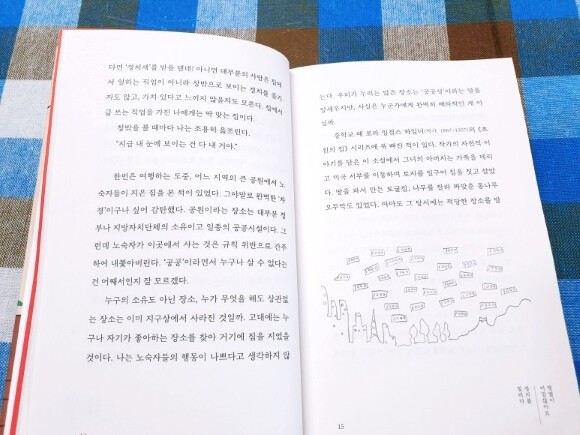 다면 '경치세'를 받을 텐데! 아니면 대부분의 사람은 집에
서 일하는 직업이 아니라 창밖으로 보이는 경치를 즐기
지도 않고, 가치 있다고 느끼지 않을지도 모른다. 집에서
글 쓰는 직업을 가진 나에게는 딱 맞는 집이다.
창밖을 볼 때마다 나는 조용히 읊조린다.
"지금 내 눈에 보이는 건 다 내 거야."
한번은 여행하는 도중, 어느 지역의 큰 공원에서 노
숙자들이 지은 집을 본 적이 있었다. 그야말로 완벽한 '차
경'이구나 싶어 감탄했다. 공원이라는 장소는 대부분 정
부나 지방자치단체의 소유이고 일종의 공공시설이다. 그
런데 노숙자가 이곳에서 사는 것은 규칙 위반으로 간주
하여 내쫓아버린다. '공공'이라면서 누구나 살 수 없다는
건 어째서인지 잘 모르겠다.
누구의 소유도 아닌 장소, 누가 무엇을 해도 상관없
는 장소는 이미 지구상에서 사라진 것일까. 고대에는 누
구나 자기가 좋아하는 장소를 찾아 거기에 집을 지었을
것이다. 나는 노숙자들의 행동이 나쁘다고 생각하지 않
는다. 우리가 누리는 많은 장소는 '공공성'이라는 말을
앞세우지만, 사실은 누군가에게 완벽히 배타적인 게 아
닐까.
중학교 때 로라 잉걸스 와일더의 《초
원의 집》 시리즈에 빠진 적이 있다. 작가의 자전적 이
야기를 담은 이 소설에서 그녀의 아버지는 가족을 데리
고 미국 서부를 이동하며 토지를 일구어 집을 짓고 살았
다. 땅을 파서 만든 토굴집, 나무를 잘라 짜맞춘 통나무
오두막도 있었다. 아마도 그 당시에는 적당한 장소를 발
15